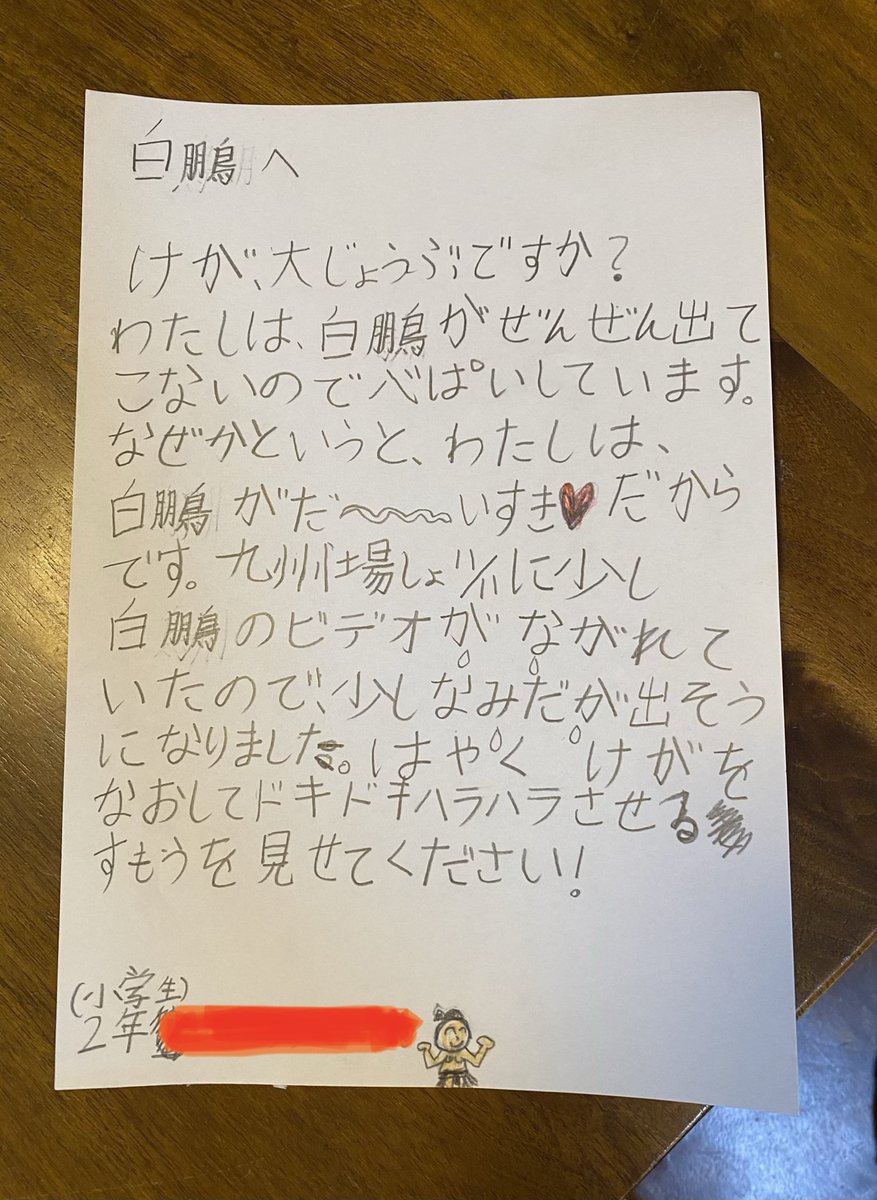 白鵬へ
けが、大じょうぶですか？
わたしは、白鵬がぜんぜん出て
こないので心ぱいしています。
なぜかというと、わたしは、
白鵬がだ〜〜〜いすき♥だから
です。九州場しょ11/11に少し
白鵬のビデオがながれて
いたので、少しなみだが出そう
になりました。はやく けがを
なおしてドキドキハラハラさせる
すもうを見せてください！
(小学生)
2年